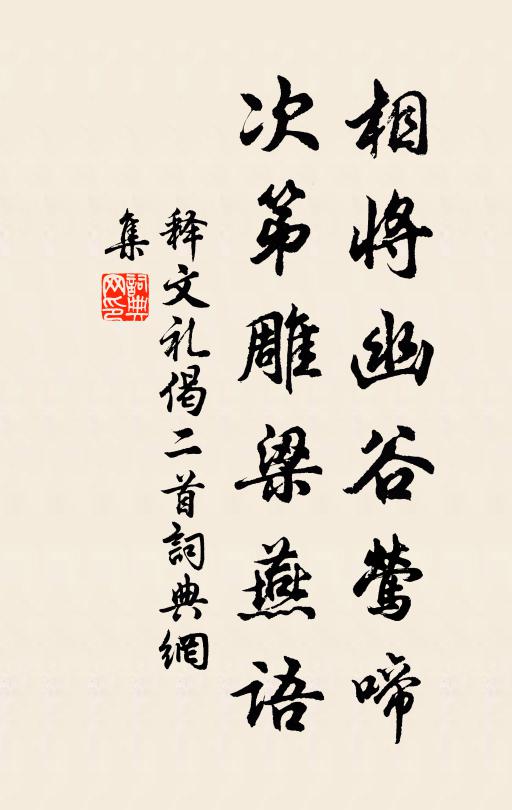 相将幽谷莺啼
次第雕梁燕语
释文礼偈二首詞典網
集
詞典网印